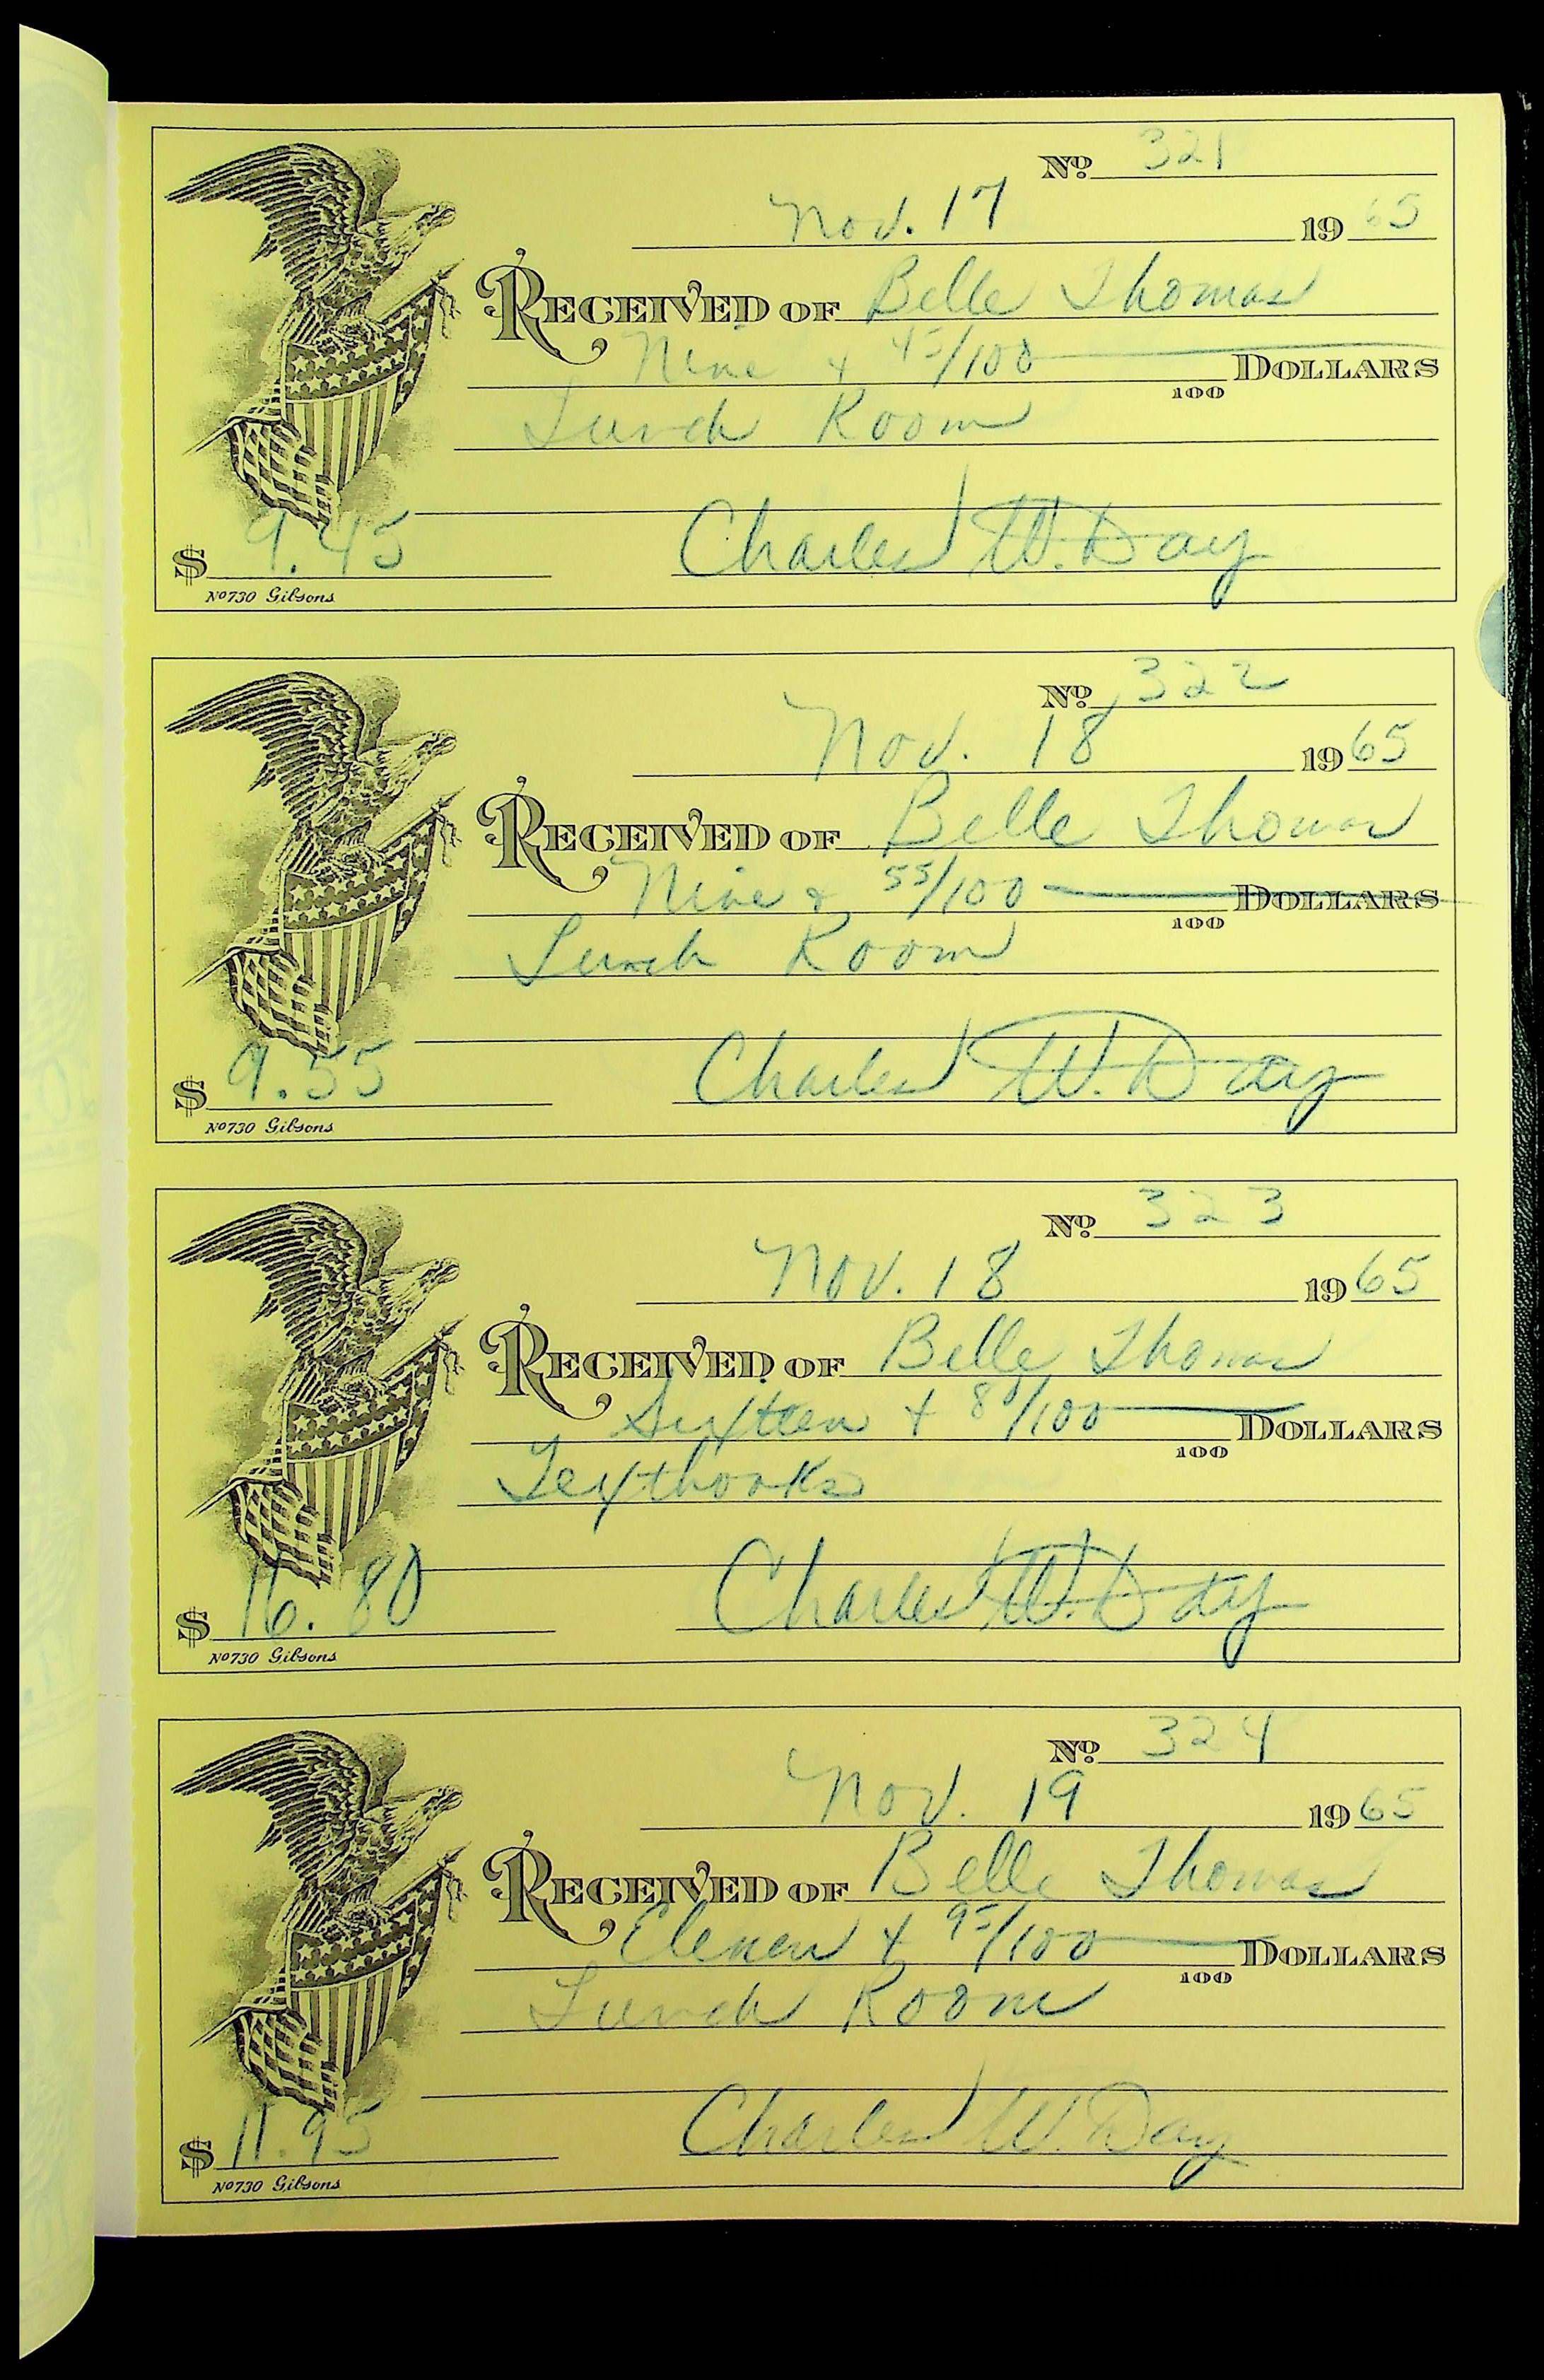 No. 321
Nov. 17 1965
RECEIVED OF Belle Thomas
Nine + 45/100 DOLLARS
100
Lunch Room
$ 9.45 Charles W. Day
No 730 Gibsons
No. 322
Nov. 18 1965
RECEIVED OF Belle Thomas
Nine & 55/100 DOLLARS
100
Lunch Room
$ 9.55 Charles W. Day
No 730 Gibsons
No. 323
Nov. 18 1965
RECEIVED OF Belle Thomas
Sixteen + 80/100 DOLLARS
100
Textbooks
$ 16.80 Charles W. Day
No 730 Gibsons
No. 324
Nov. 19 1965
RECEIVED OF Belle Thomas
Eleven + 95/100 DOLLARS
100
Lunch Room
$ 11.95 Charles W. Day
No 730 Gibsons